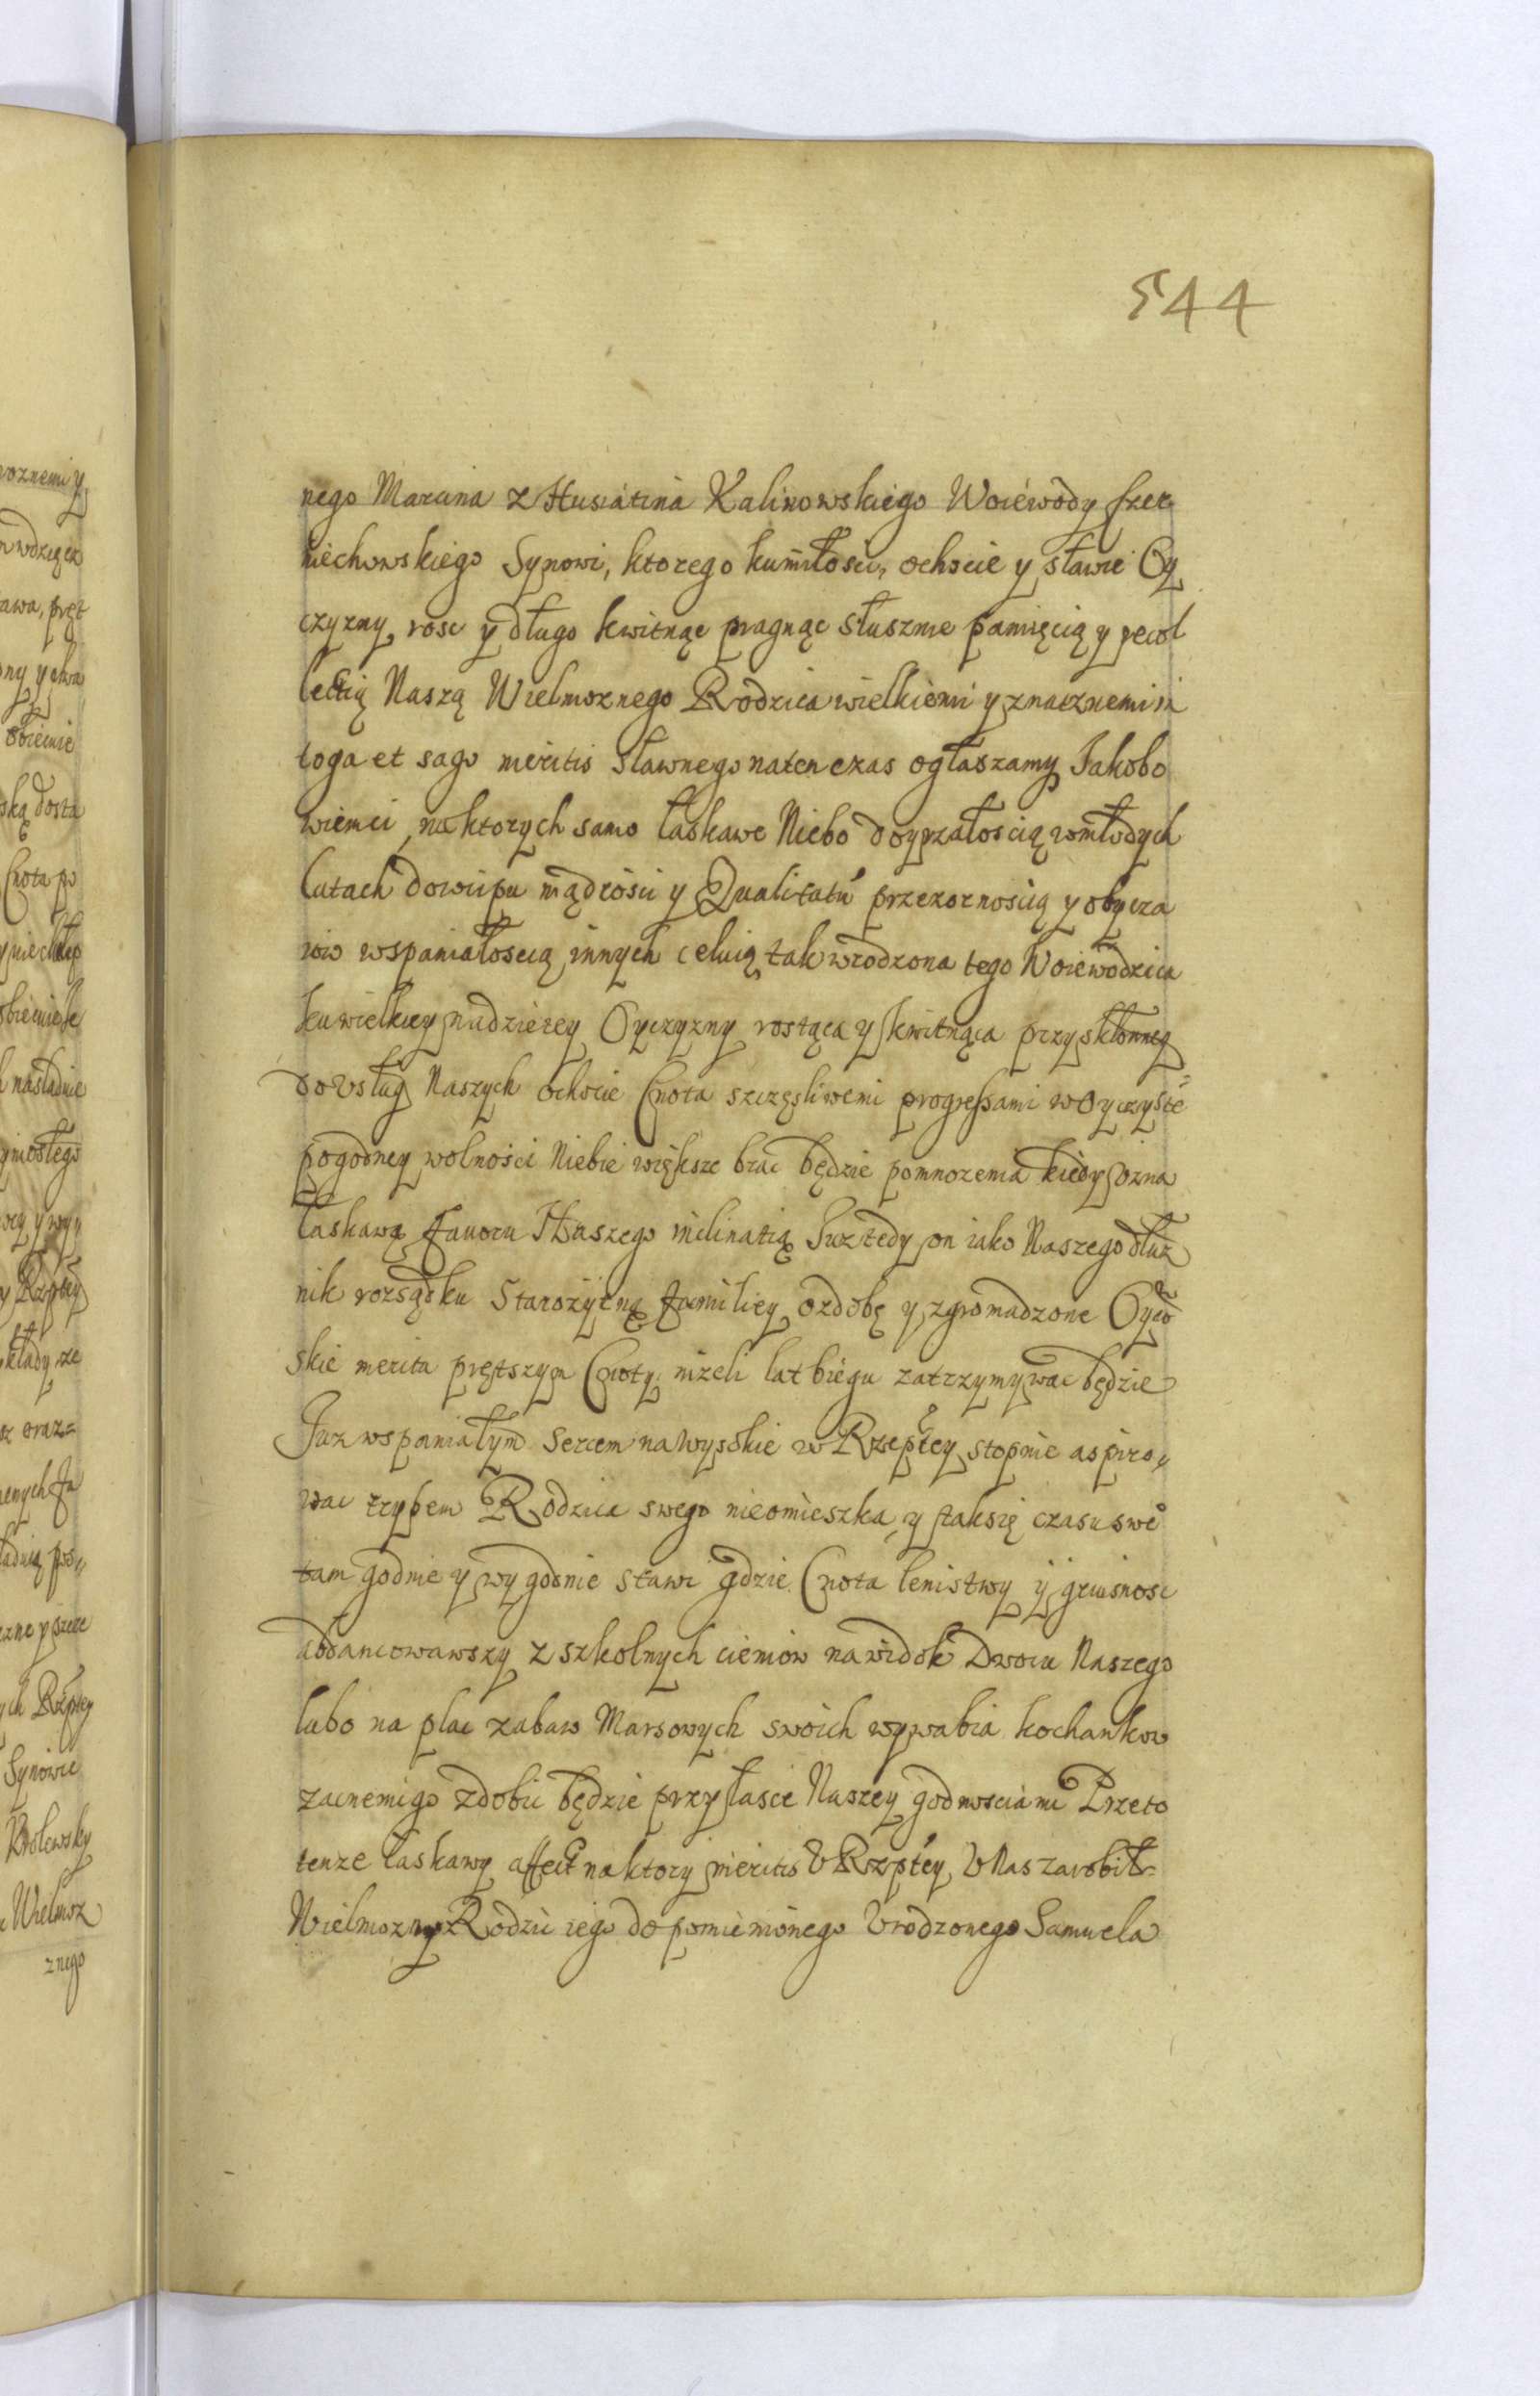 544
nego Marcina z Husiatina Kalinowskiego Woiewody Czer
niechowskiego Synowi, ktorego ku miłosci, ochocie y sławie Oy
czyzny rosc y długo kwitnąc pragnąc słusznie pamięcią y recol
lectią Naszą Wielmoznego Rodzica wielkiemi y znacznemi in
toga et sago meritis sławnego naten czas ogłaszamy Jakobo
wiemci, na ktorych samo łaskawe Niebo doyrzałoscią w młodych
latach dowcipu mądrosci y Qualitatu przezornoscią y obycza
iow wspaniałoscią innych celuią tak wrodzona tego Woiewodzica
ku wielkiey nadzieiey Oyczyzny rostąca y kwitnąca przy skłonney
do Vsług Naszych ochocie Cnota szczęsliwemi progressami w Oyczyste
pogodney wolnosci Niebie większe brac będzie pomnozenia kiedy ozna
łaskawą fauoru Naszego inclinatią Juz tedy on iako Naszego dłuz
nik rozsądku Starozytną familiey ozdobę y zgromadzone Oyco
skie merita prętszym Cnoty nizeli lat biegu zatrzymywac będzie
Juz wspaniałym sercem na wysokie w Rzeptey stopnie aspiro,,
wac trybem Rodzica swego nieomieszka y tak się czasu swe°
tam godnie y wygodnie stawi gdzie Cnota lenistwy y gnusnosc
abdancowawszy z szkolnych cieniow na widok Dworu Naszego
lubo na plac zabaw Marsowych swoich wywabia kochankow
zacnemi go zdobic będzie przy łasce Naszey godnosciami Przeto
tenze łaskawy affect na ktory meritis V Rzptey V Nas zarobił
Wielmozny Rodzic iego do pomienionego Vrodzonego Samuela